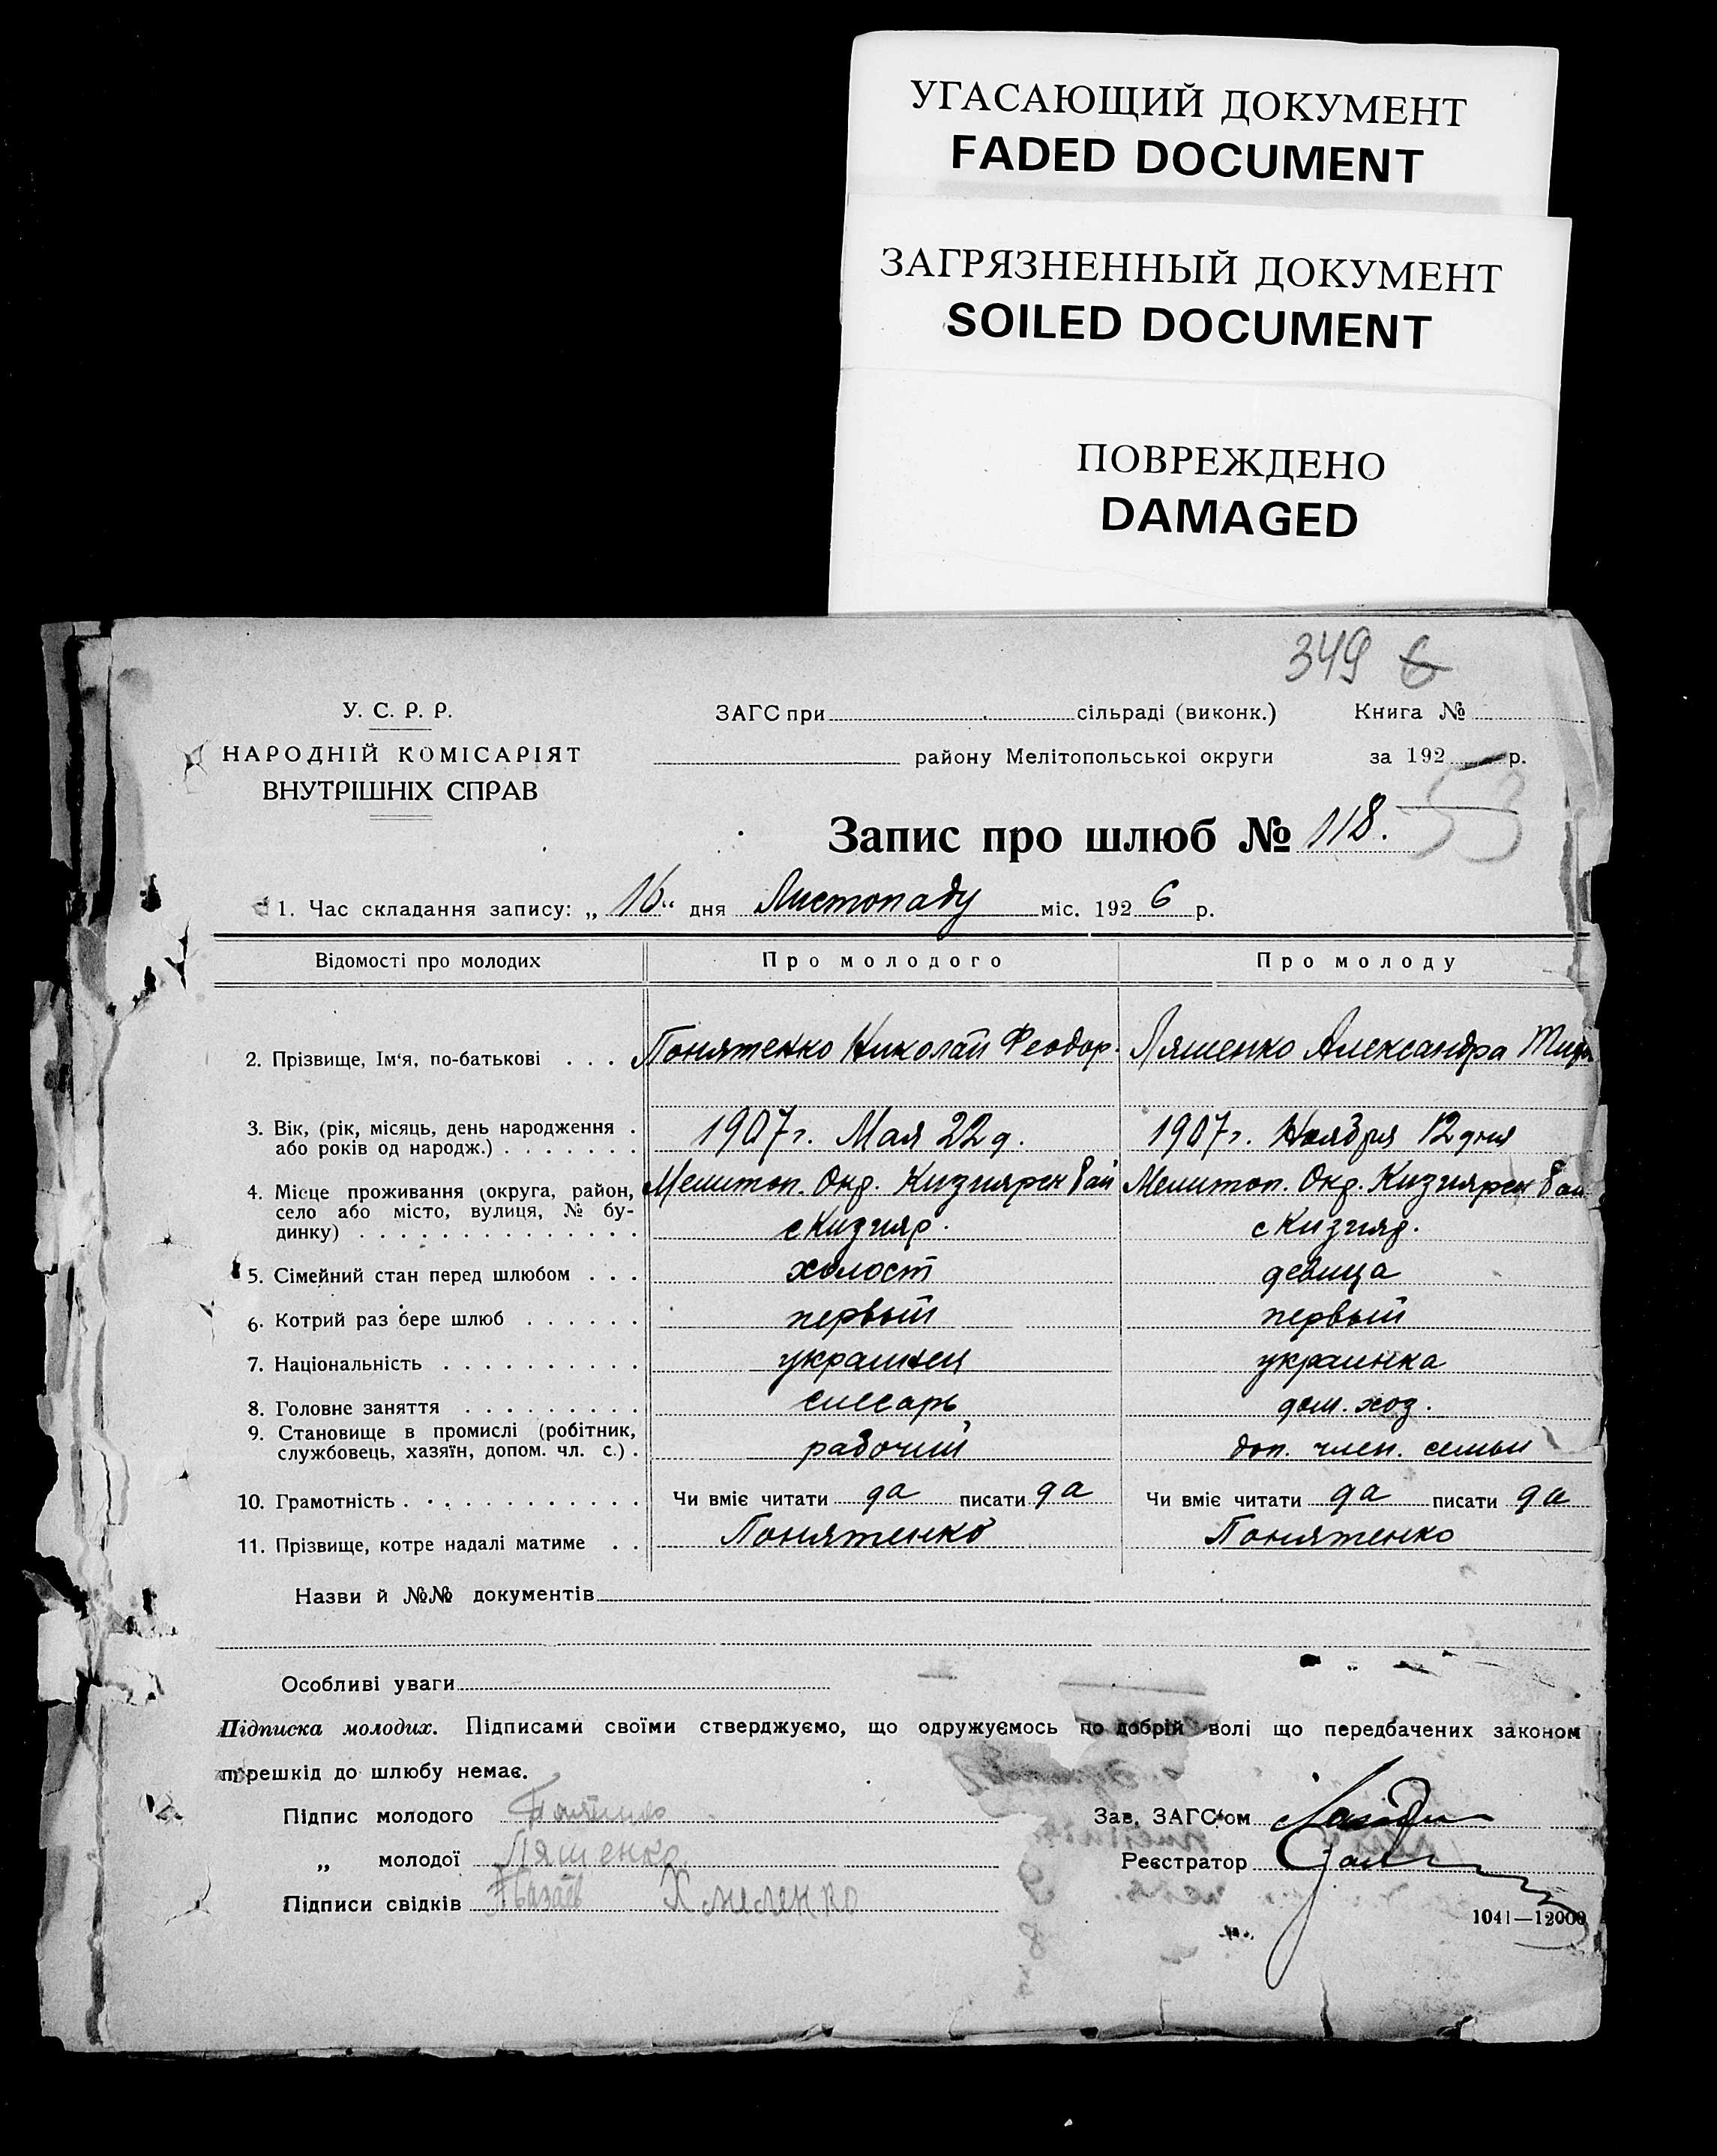 УГАСАЮЩИЙ ДОКУМЕНТ
FADED DOCUMENT
ЗАГРЯЗНЕННЫЙ ДОКУМЕНТ
SOILED DOCUMENT
ПОВРЕЖДЕНО
DAMAGED
349 6
У. С. Р. Р.
НАРОДНІЙ КОМІСАРІЯТ
ВНУТРІШНІХ СПРАВ
ЗАГС при сільраді (виконк.) Книга №
району Мелітопольської округи за 192 р.
53
Запис про шлюб № 118.
1. Час складання запису: „ 16 “ дня Листопаду міс. 192 6 р.
Відомості про молодих Про молодого Про молоду
2. Прізвище, Ім‘я, по-батькові . . . Понятенко Николай Феодор. Ляшенко Александра
3. Вік, (рік, місяць, день народження .
або років од народж.) . . . . . . . 1907 г. Мая 22 д. 1907 г. Ноября 12 дня
4. Місце проживання (округа, район, Мелитоп. Окр. Кизиярск Рай Мелитоп. Окр. Кизиярск Рай
село або місто, вулиця, № бу-
динку) . . . . . . . . . . . . . . с Кизияр. с Кизияр.
5. Сімейний стан перед шлюбом . . . холост девица
6. Котрий раз бере шлюб . . . . . . первый первый
7. Національність . . . . . . . . . . украинец украинка
8. Головне заняття . . . . . . . . . слесарь дом. хоз.
9. Становище в промислі (робітник,
службовець, хазяїн, допом. чл. с.) . рабочий доп. член. семьи
10. Грамотність . . . . . . . . . . . . Чи вміє читати да писати да Чи вміє читати да писати да
11. Прізвище, котре надалі матиме . . Понятенко Понятенко
Назви й №№ документів
Особливі уваги
Підписка молодих. Підписами своїми стверджуємо, що одружуємось по добрій волі що передбачених законом
перешкід до шлюбу немає.
Підпис молодого Зав. ЗАГС‘ом
„ молодої Ляшенко Реєстратор
Підписи свідків Хмеленко
1041—12000